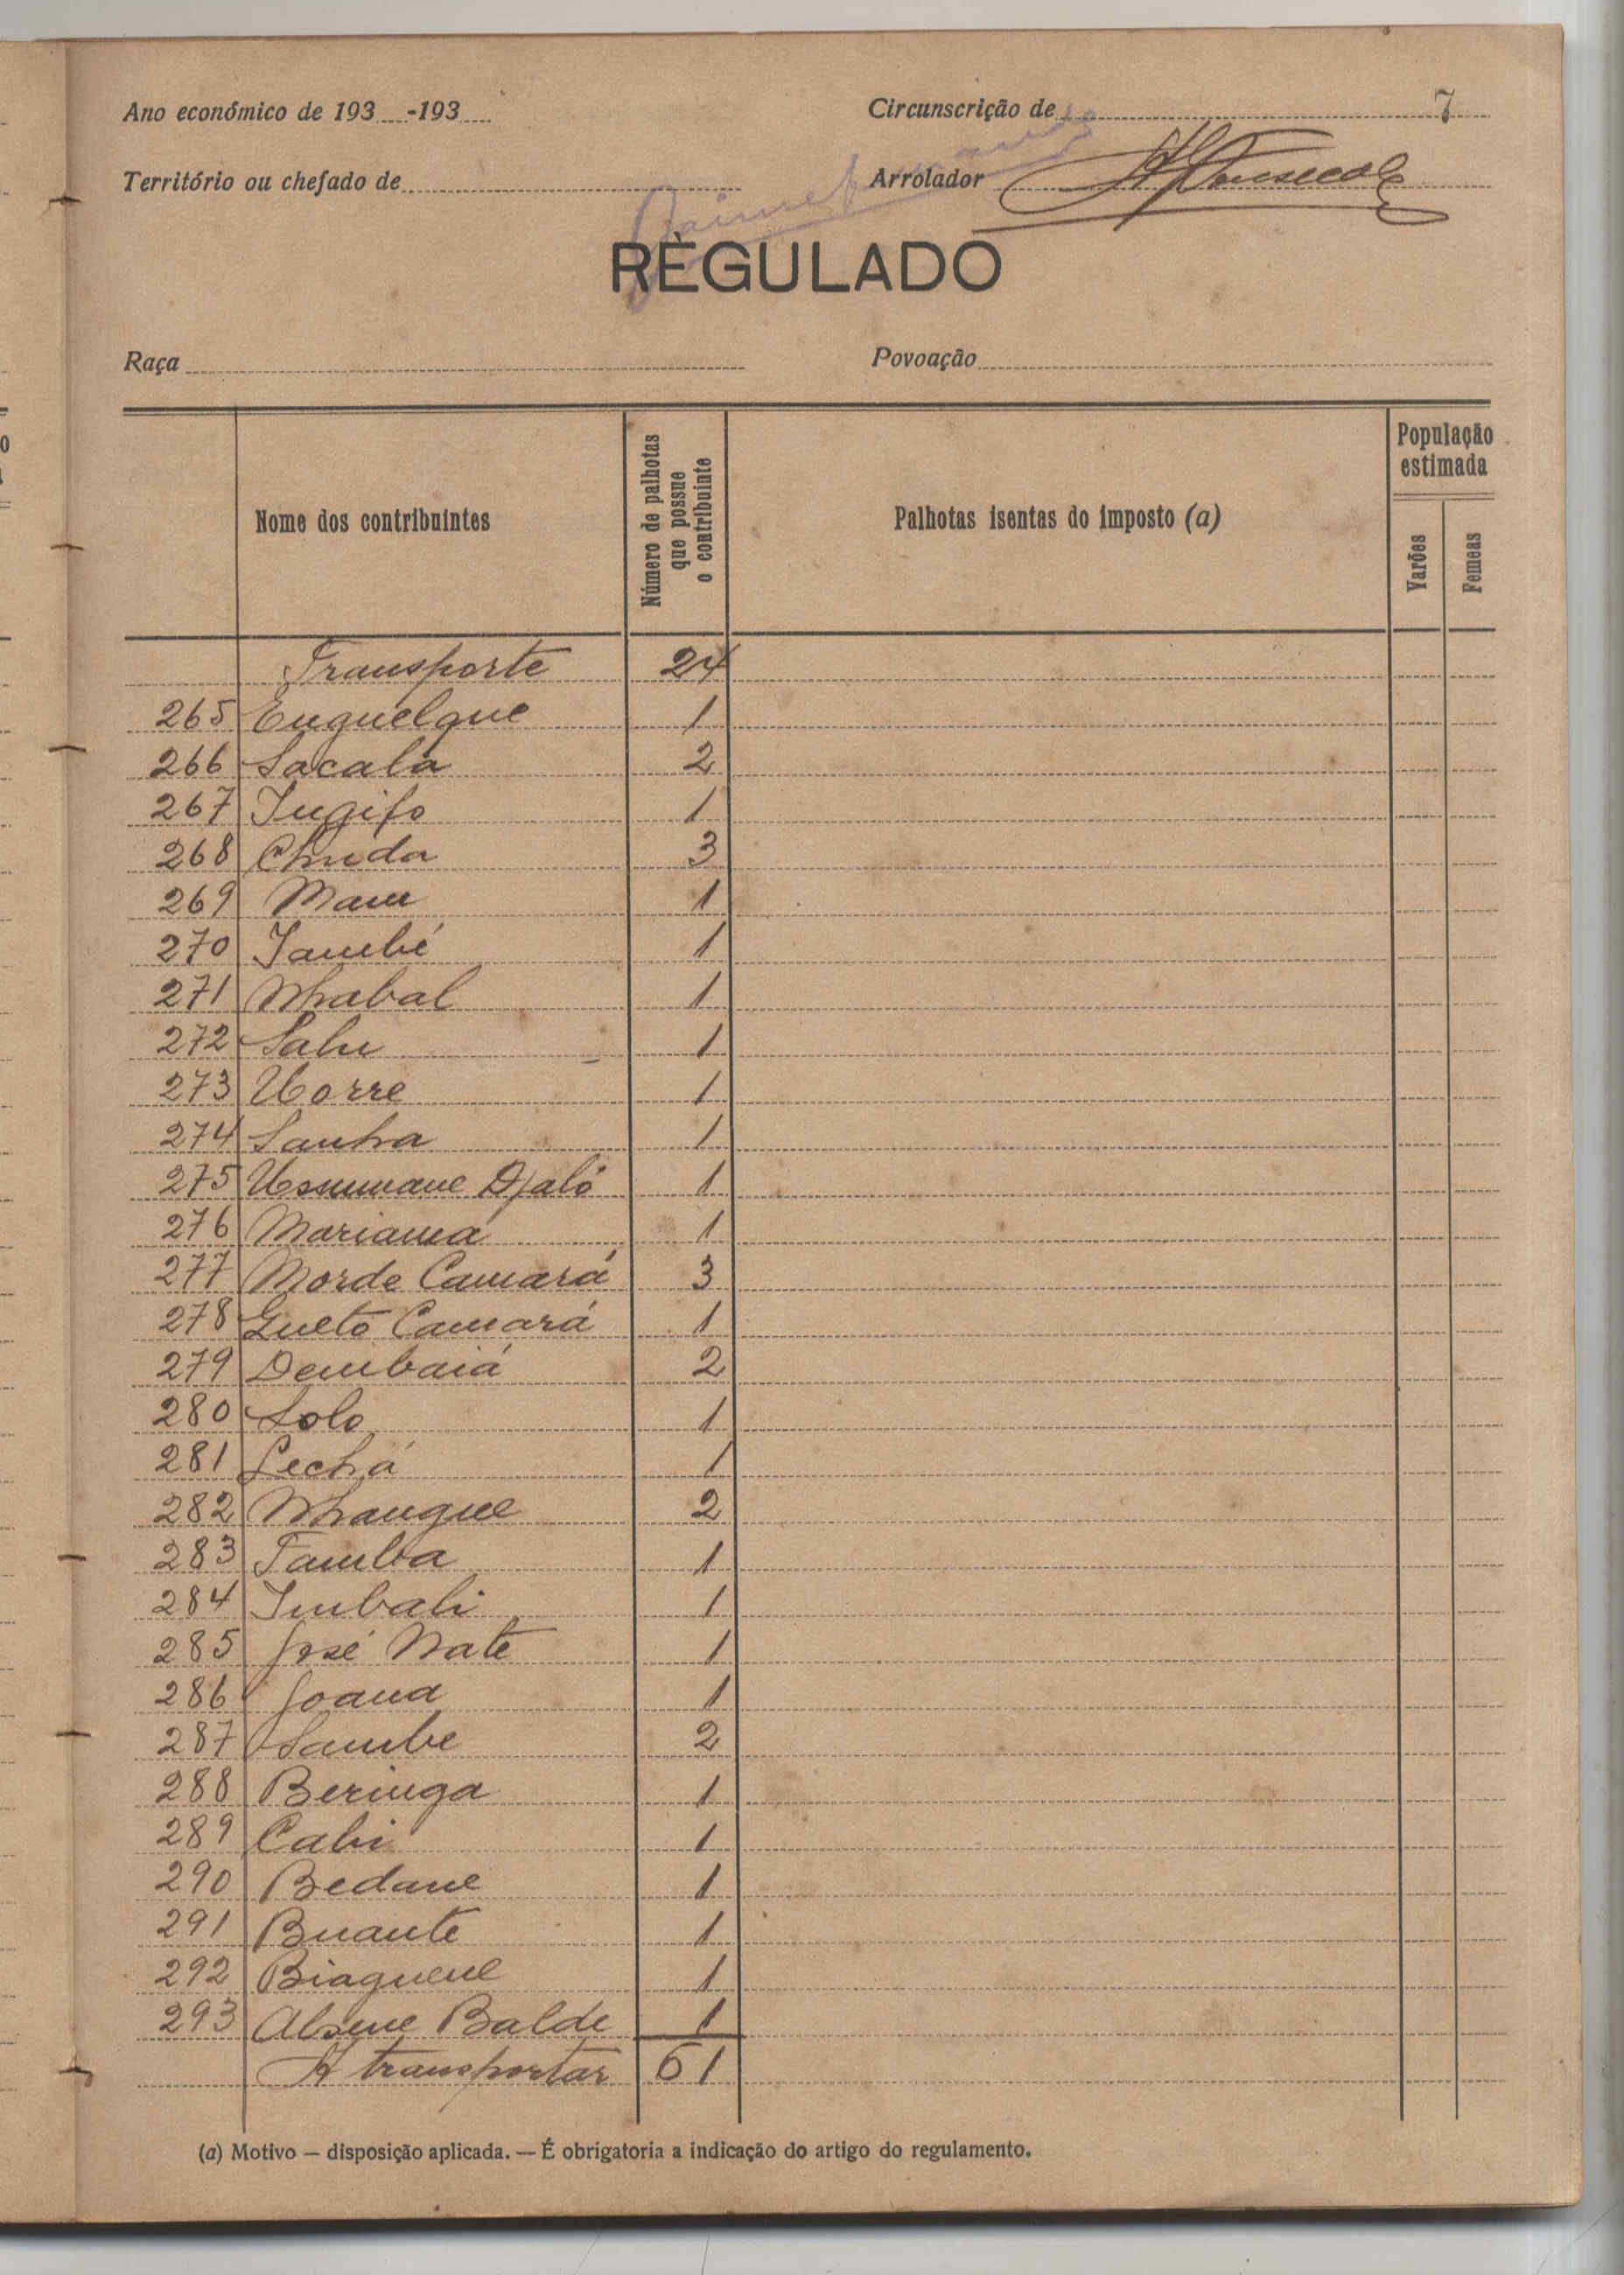 Ano económico de 193 -193
Circunscrição de 7
Território ou chefado de
Arrolador
REGULADO
Raça
Povoação
Nome dos contribuintes
Número de palhotas que possue o contribuinte
Palhotas isentas do imposto (a)
População estimada
Varões
Femeas
Transporte 24
265 Enguelque 1
266 Sacala 2
267 Iugifo 1
268 Chuda 3
269 Mau 1
270 Iambé 1
271 Nhabal 1
272 Salu 1
273 Uorre 1
274 Sanha 1
275 Ussumane Djaló 1
276 Mariama 1
277 Morde Camará 3
278 Gueto Camará 1
279 Dembaiá 2
280 Solo 1
281 Lechá 1
282 Nhangue 2
283 Tamba 1
284 Imbali 1
285 José Nate 1
286 Joana 1
287 Sambe 2
288 Beringa 1
289 Cabi 1
290 Bedane 1
291 Buante 1
292 Biaguene 1
293 Alsene Balde 1
A transportar 61
(a) Motivo — disposição aplicada. — É obrigatoria a indicação do artigo do regulamento.